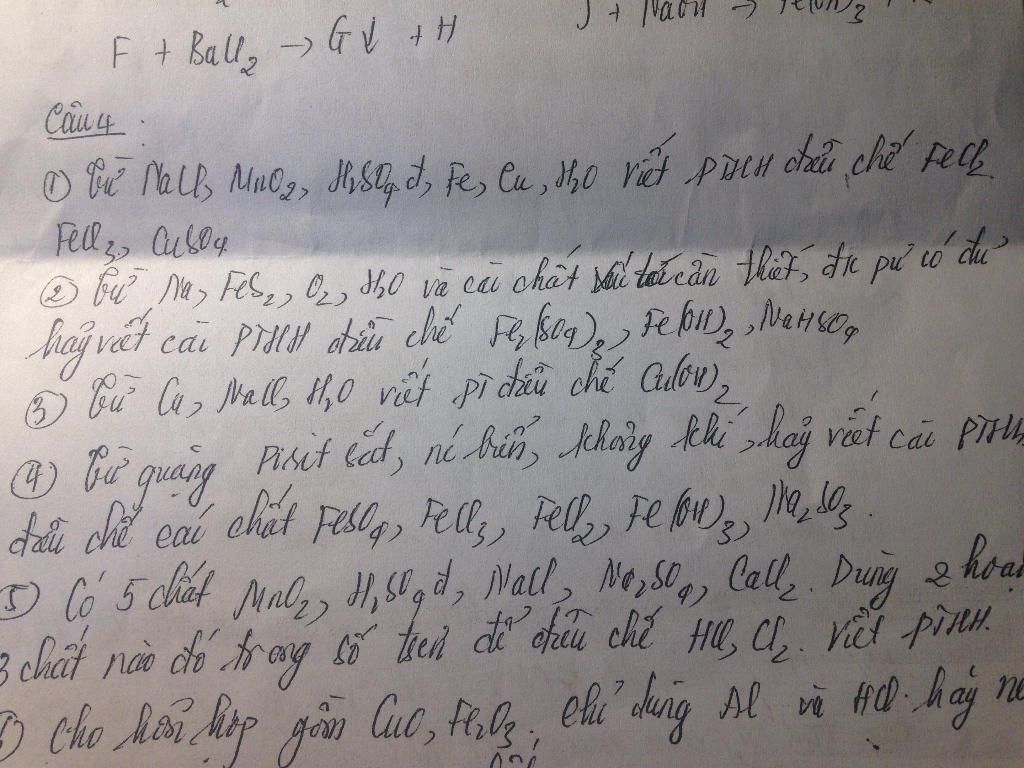 J + NaOH → Fe(OH)3 +
F + BaCl2 → G↓ + H
Câu 4.
① Từ NaCl, MnO2, H2SO4 đ, Fe, Cu, H2O viết PTHH điều chế FeCl2
FeCl3, CuSO4
② Từ Na, FeS2, O2, H2O và các chất cần thiết, đk pứ có đủ
hãy viết các PTHH điều chế Fe2(SO4)3, Fe(OH)2, NaHSO4
③ Từ Cu, NaCl, H2O viết pt điều chế Cu(OH)2
④ Từ quặng Pirit sắt, nc biển, không khí, hãy viết các PTHH
điều chế các chất FeSO4, FeCl3, FeCl2, Fe(OH)3, Na2SO3.
⑤ Có 5 chất MnO2, H2SO4 đ, NaCl, Na2SO4, CaCl2. Dùng 2 hoặ
3 chất nào đó trong số trên để điều chế HCl, Cl2. Viết PTHH.
cho hỗn hợp gồm CuO, Fe2O3. chỉ dùng Al và HCl. hãy